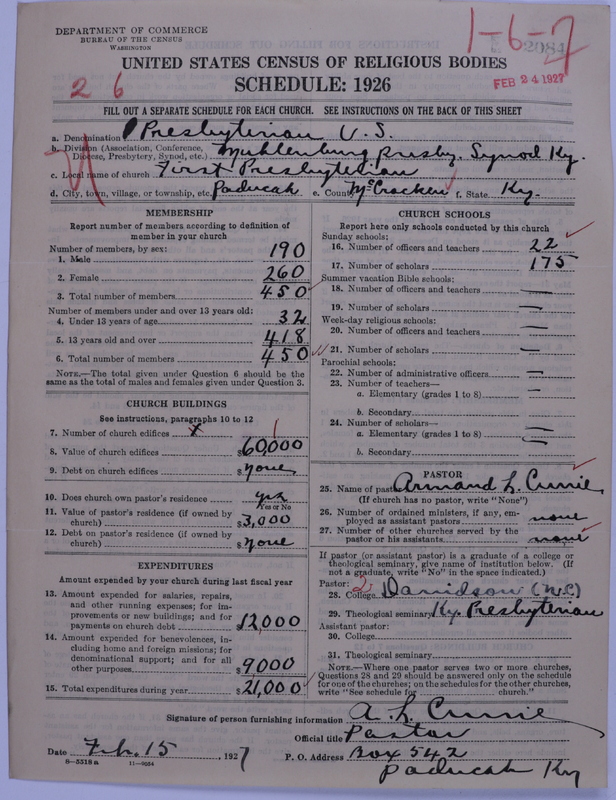 DEPARTMENT OF COMMERCE
BUREAU OF THE CENSUS
WASHINGTON
1-6-7
2084
FEB 24 1927
UNITED STATES CENSUS OF RELIGIOUS BODIES
SCHEDULE: 1926
2 6
FILL OUT A SEPARATE SCHEDULE FOR EACH CHURCH. SEE INSTRUCTIONS ON THE BACK OF THIS SHEET
a. Denomination Presbyterian U.S.
b. Division (Association, Conference, Diocese, Presbytery, Synod, etc.) Muhlenburg Presby. Synod Ky.
c. Local name of church First Presbyterian
d. City, town, village, or township, etc. Paducah e. County McCracken f. State Ky.
MEMBERSHIP
Report number of members according to definition of
member in your church
Number of members, by sex:
1. Male 190
2. Female 260
3. Total number of members 450
Number of members under and over 13 years old:
4. Under 13 years of age 32
5. 13 years old and over 418
6. Total number of members 450
NOTE.—The total given under Question 6 should be the
same as the total of males and females given under Question 3.
CHURCH BUILDINGS
See instructions, paragraphs 10 to 12
7. Number of church edifices 1
8. Value of church edifices $60,000
9. Debt on church edifices $none
10. Does church own pastor's residence yes
Yes or No
11. Value of pastor's residence (if owned by
church) $3,000
12. Debt on pastor's residence (if owned by
church) $none
EXPENDITURES
Amount expended by your church during last fiscal year
13. Amount expended for salaries, repairs,
and other running expenses; for im-
provements or new buildings; and for
payments on church debt $12,000
14. Amount expended for benevolences, in-
cluding home and foreign missions; for
denominational support; and for all
other purposes $9,000
15. Total expenditures during year $21,000
CHURCH SCHOOLS
Report here only schools conducted by this church
Sunday schools:
16. Number of officers and teachers 22
17. Number of scholars 175
Summer vacation Bible schools:
18. Number of officers and teachers —
19. Number of scholars —
Week-day religious schools:
20. Number of officers and teachers —
21. Number of scholars —
Parochial schools:
22. Number of administrative officers —
23. Number of teachers—
a. Elementary (grades 1 to 8) —
b. Secondary
24. Number of scholars—
a. Elementary (grades 1 to 8) —
b. Secondary
PASTOR
25. Name of pastor Armand L. Currie
(If church has no pastor, write "None")
26. Number of ordained ministers, if any, em-
ployed as assistant pastors none
27. Number of other churches served by the
pastor or his assistants none
If pastor (or assistant pastor) is a graduate of a college or
theological seminary, give name of institution below. (If
not a graduate, write "No" in the space indicated.)
Pastor: 2
28. College Davidson (N.C)
29. Theological seminary Ky. Presbyterian
Assistant pastor:
30. College
31. Theological seminary
NOTE.—Where one pastor serves two or more churches,
Questions 28 and 29 should be answered only on the schedule
for one of the churches; on the schedules for the other churches,
write "See schedule for church."
Signature of person furnishing information A. L. Currie
Official title Pastor
Date Feb. 15, 1927 P. O. Address Box 542
8-5518a 11-9034
Paducah Ky